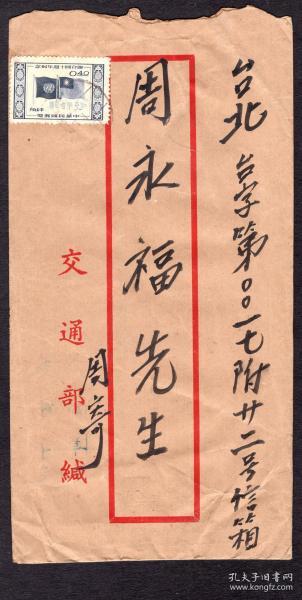 台北 台字第〇〇一七附廿二号信箱
周永福先生
交通部緘
周寄
040
孔夫子旧书网